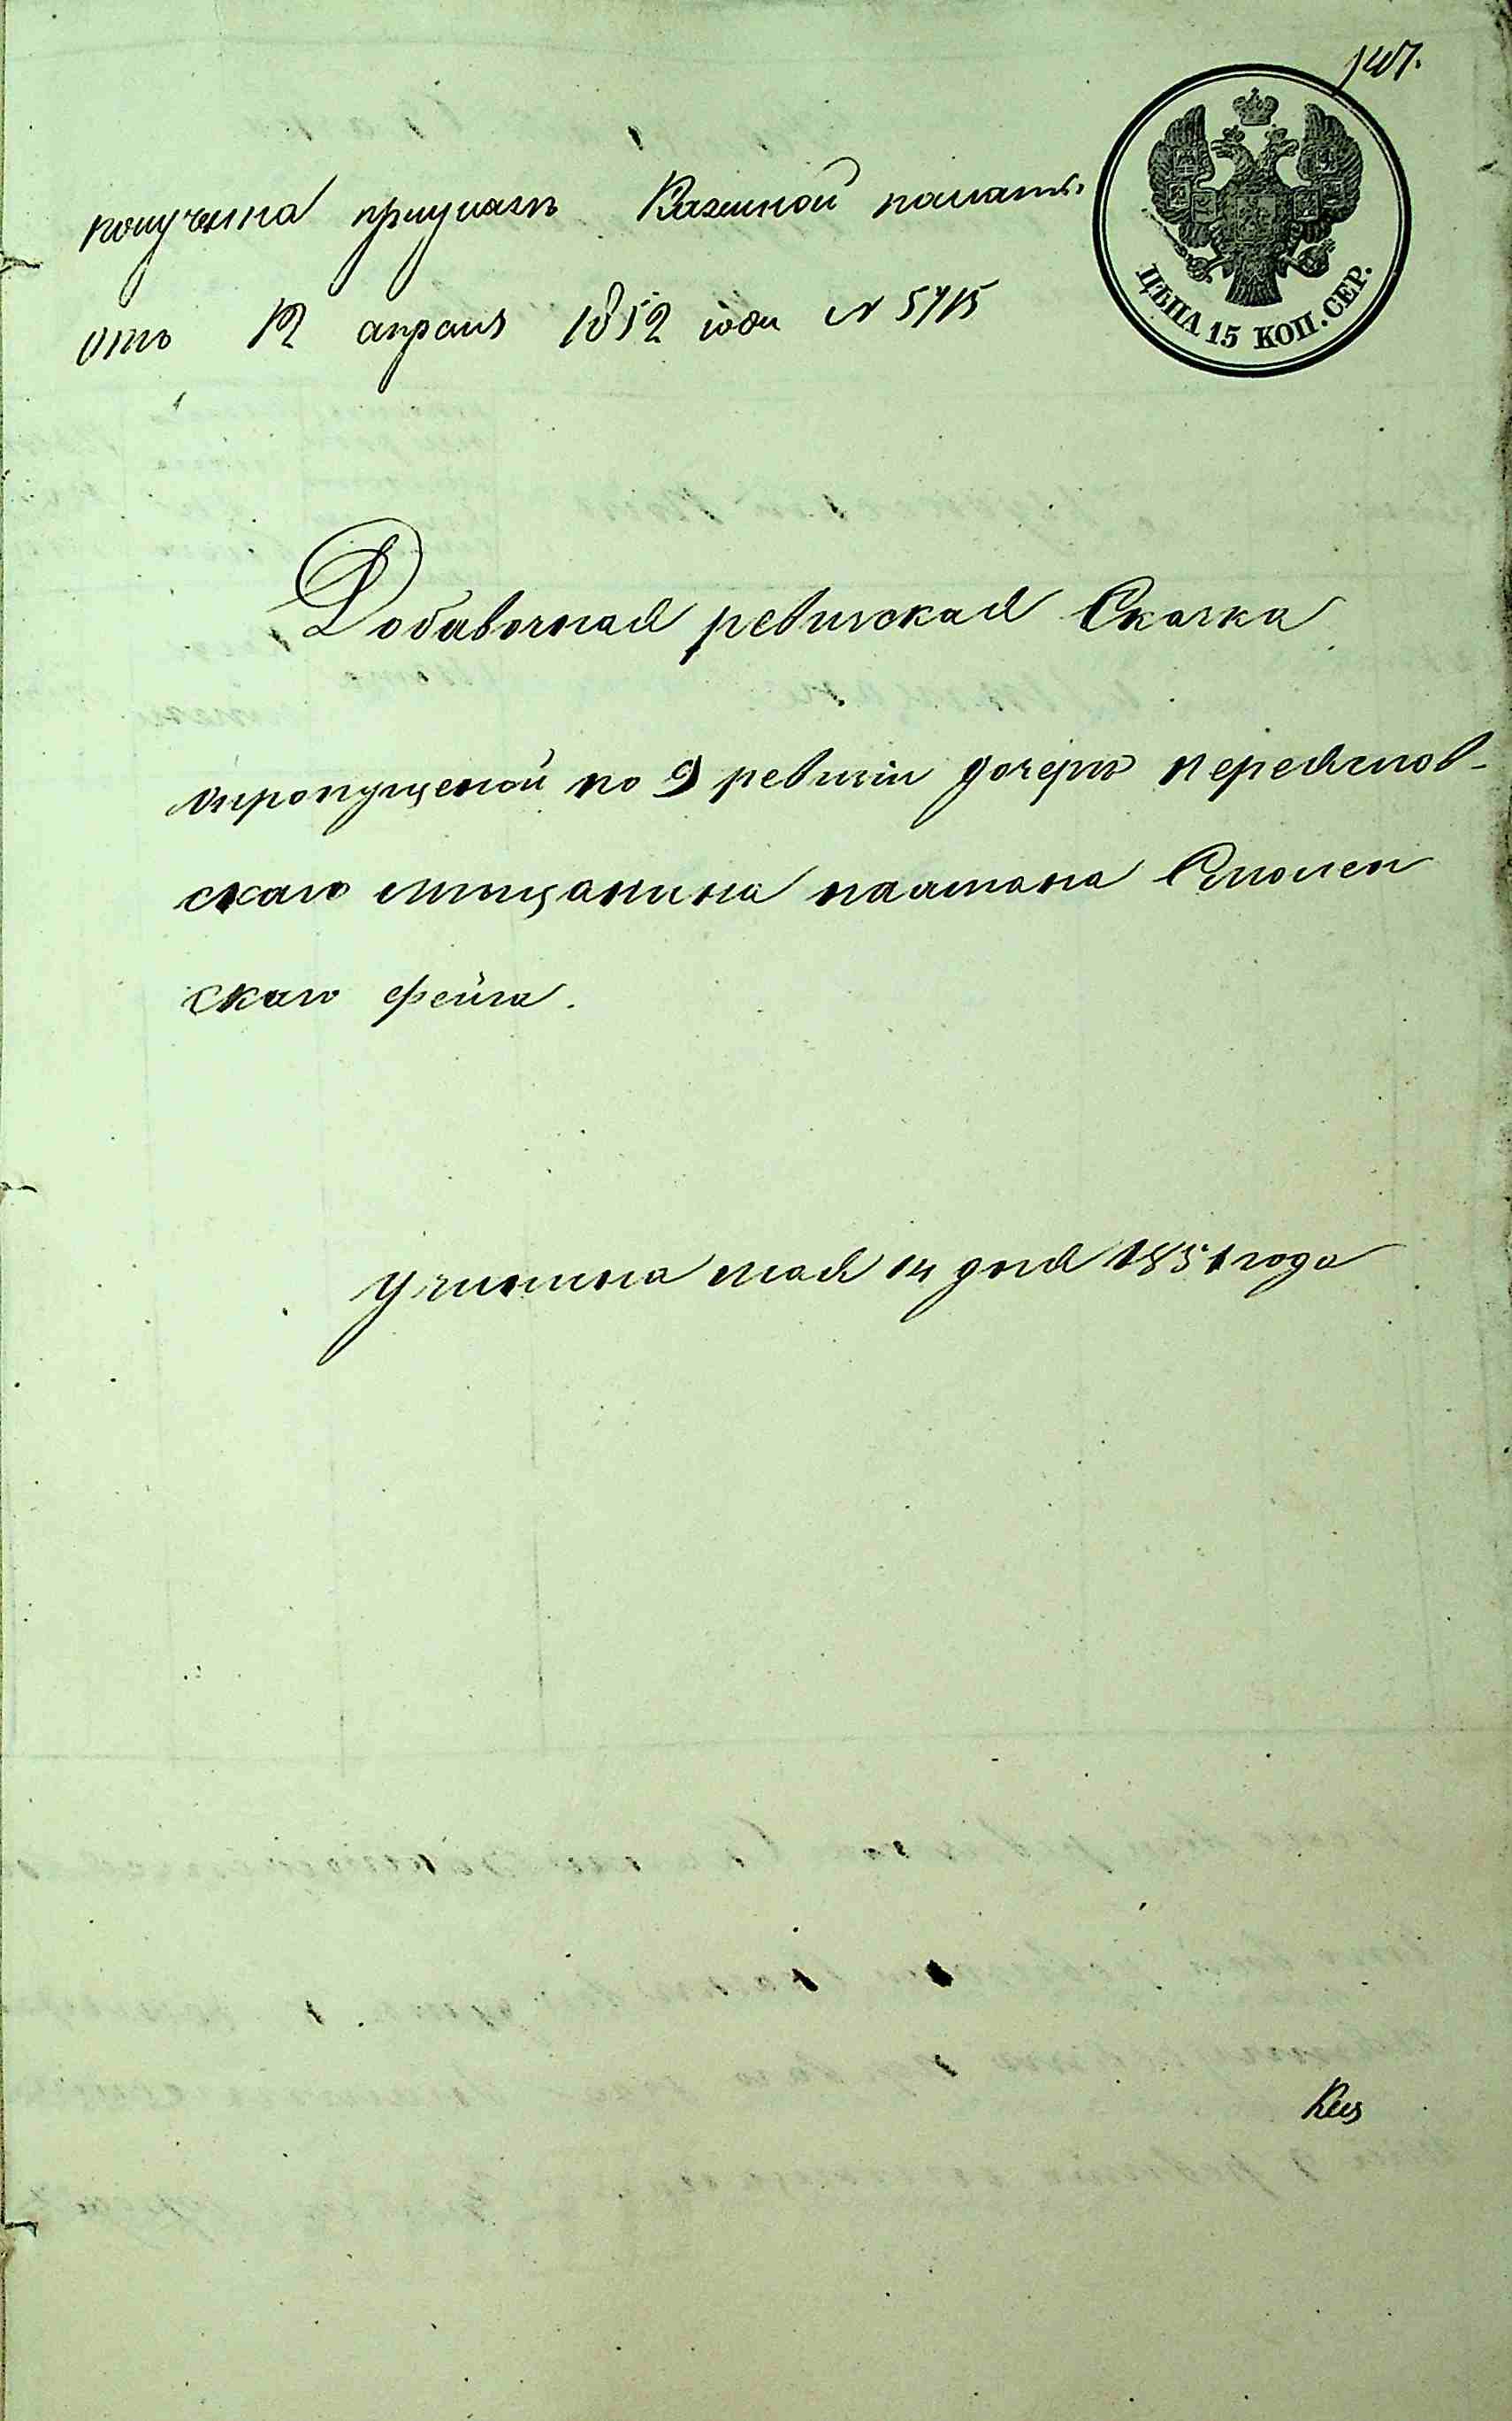 147.
ЦѢНА 15 КОП. СЕР.
получена приуказѣ Казенной палаты
отъ 12 апреля 1852 года N 5715
Добавочная ревизская Сказка
опропущеной по 9 ревизіи дочерѣ переяслов-
скаго мещанина натана Смолен
скаго Фейга.
Учинена мая 14 дня 1851 года